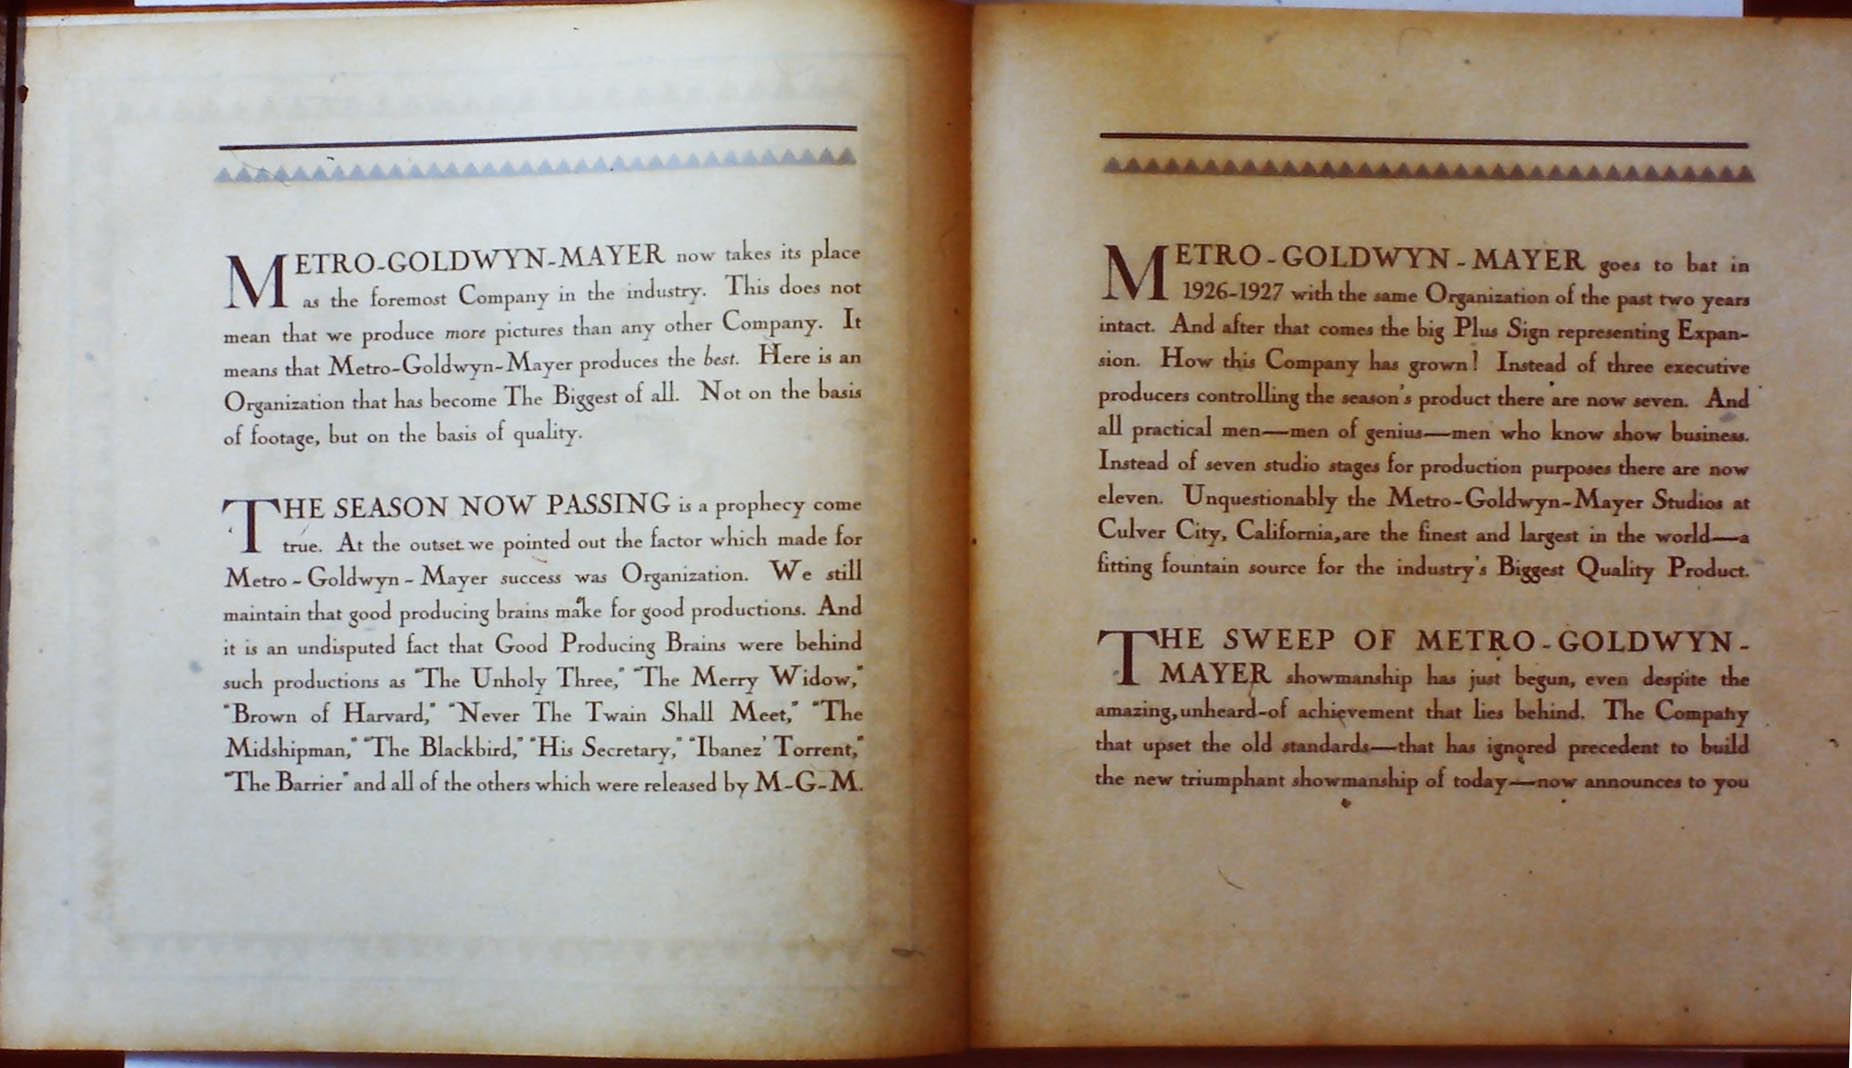 METRO-GOLDWYN-MAYER now takes its place
as the foremost Company in the industry. This does not
mean that we produce more pictures than any other Company. It
means that Metro-Goldwyn-Mayer produces the best. Here is an
Organization that has become The Biggest of all. Not on the basis
of footage, but on the basis of quality.
THE SEASON NOW PASSING is a prophecy come
true. At the outset we pointed out the factor which made for
Metro-Goldwyn-Mayer success was Organization. We still
maintain that good producing brains make for good productions. And
it is an undisputed fact that Good Producing Brains were behind
such productions as "The Unholy Three," "The Merry Widow,"
"Brown of Harvard," "Never The Twain Shall Meet," "The
Midshipman," "The Blackbird," "His Secretary," "Ibanez' Torrent,"
"The Barrier" and all of the others which were released by M-G-M.
METRO-GOLDWYN-MAYER goes to bat in
1926-1927 with the same Organization of the past two years
intact. And after that comes the big Plus Sign representing Expan-
sion. How this Company has grown! Instead of three executive
producers controlling the season's product there are now seven. And
all practical men—men of genius—men who know show business.
Instead of seven studio stages for production purposes there are now
eleven. Unquestionably the Metro-Goldwyn-Mayer Studios at
Culver City, California, are the finest and largest in the world—a
fitting fountain source for the industry's Biggest Quality Product.
THE SWEEP OF METRO-GOLDWYN-
MAYER showmanship has just begun, even despite the
amazing, unheard-of achievement that lies behind. The Company
that upset the old standards—that has ignored precedent to build
the new triumphant showmanship of today—now announces to you